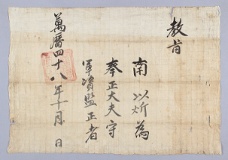 教旨
南以炘為
奉正大夫守
軍資監正者
萬曆四十八年十月 日